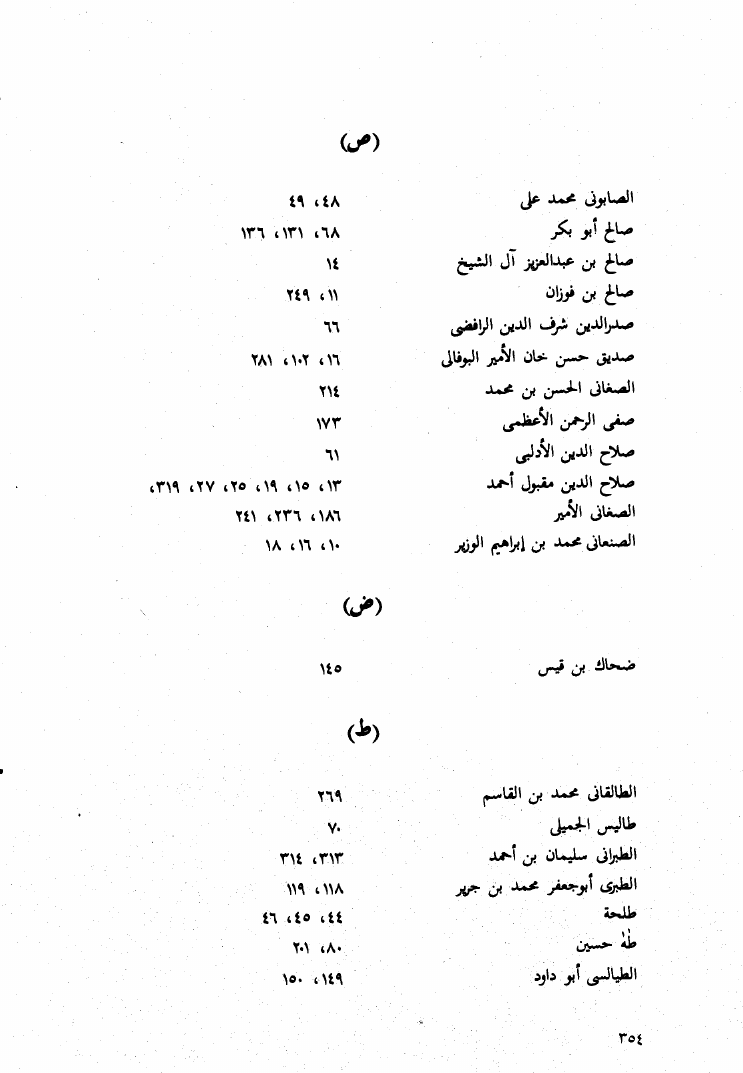 (ص)
الصابونى محمد على ٤٨، ٤٩
صالح أبو بكر ٦٨، ١٣١، ١٣٦
صالح بن عبدالعزيز آل الشيخ ١٤
صالح بن فوزان ١١، ٢٤٩
صدرالدين شرف الدين الرافضى ٦٦
صديق حسن خان الأمير البوفالى ١٦، ١٠٢، ٢٨١
الصغانى الحسن بن محمد ٢١٤
صفى الرحمن الأعظمى ١٧٣
صلاح الدين الأدلبى ٦١
صلاح الدين مقبول أحمد ١٣، ١٥، ١٩، ٢٥، ٢٧، ٣١٩،
الصغانى الأمير ١٨٦، ٢٣٦، ٢٤١
الصنعانى محمد بن إبراهيم الوزير ١٠، ١٦، ١٨
(ض)
ضحاك بن قيس ١٤٥
(ط)
الطالقانى محمد بن القاسم ٢٦٩
طاليس الجميلى ٧٠
الطبرانى سليمان بن أحمد ٣١٣، ٣١٤
الطبرى أبوجعفر محمد بن جرير ١١٨، ١١٩
طلحة ٤٤، ٤٥، ٤٦
طه حسين ٨٠، ٢٠١
الطيالسى أبو داود ١٤٩، ١٥٠
٣٥٤